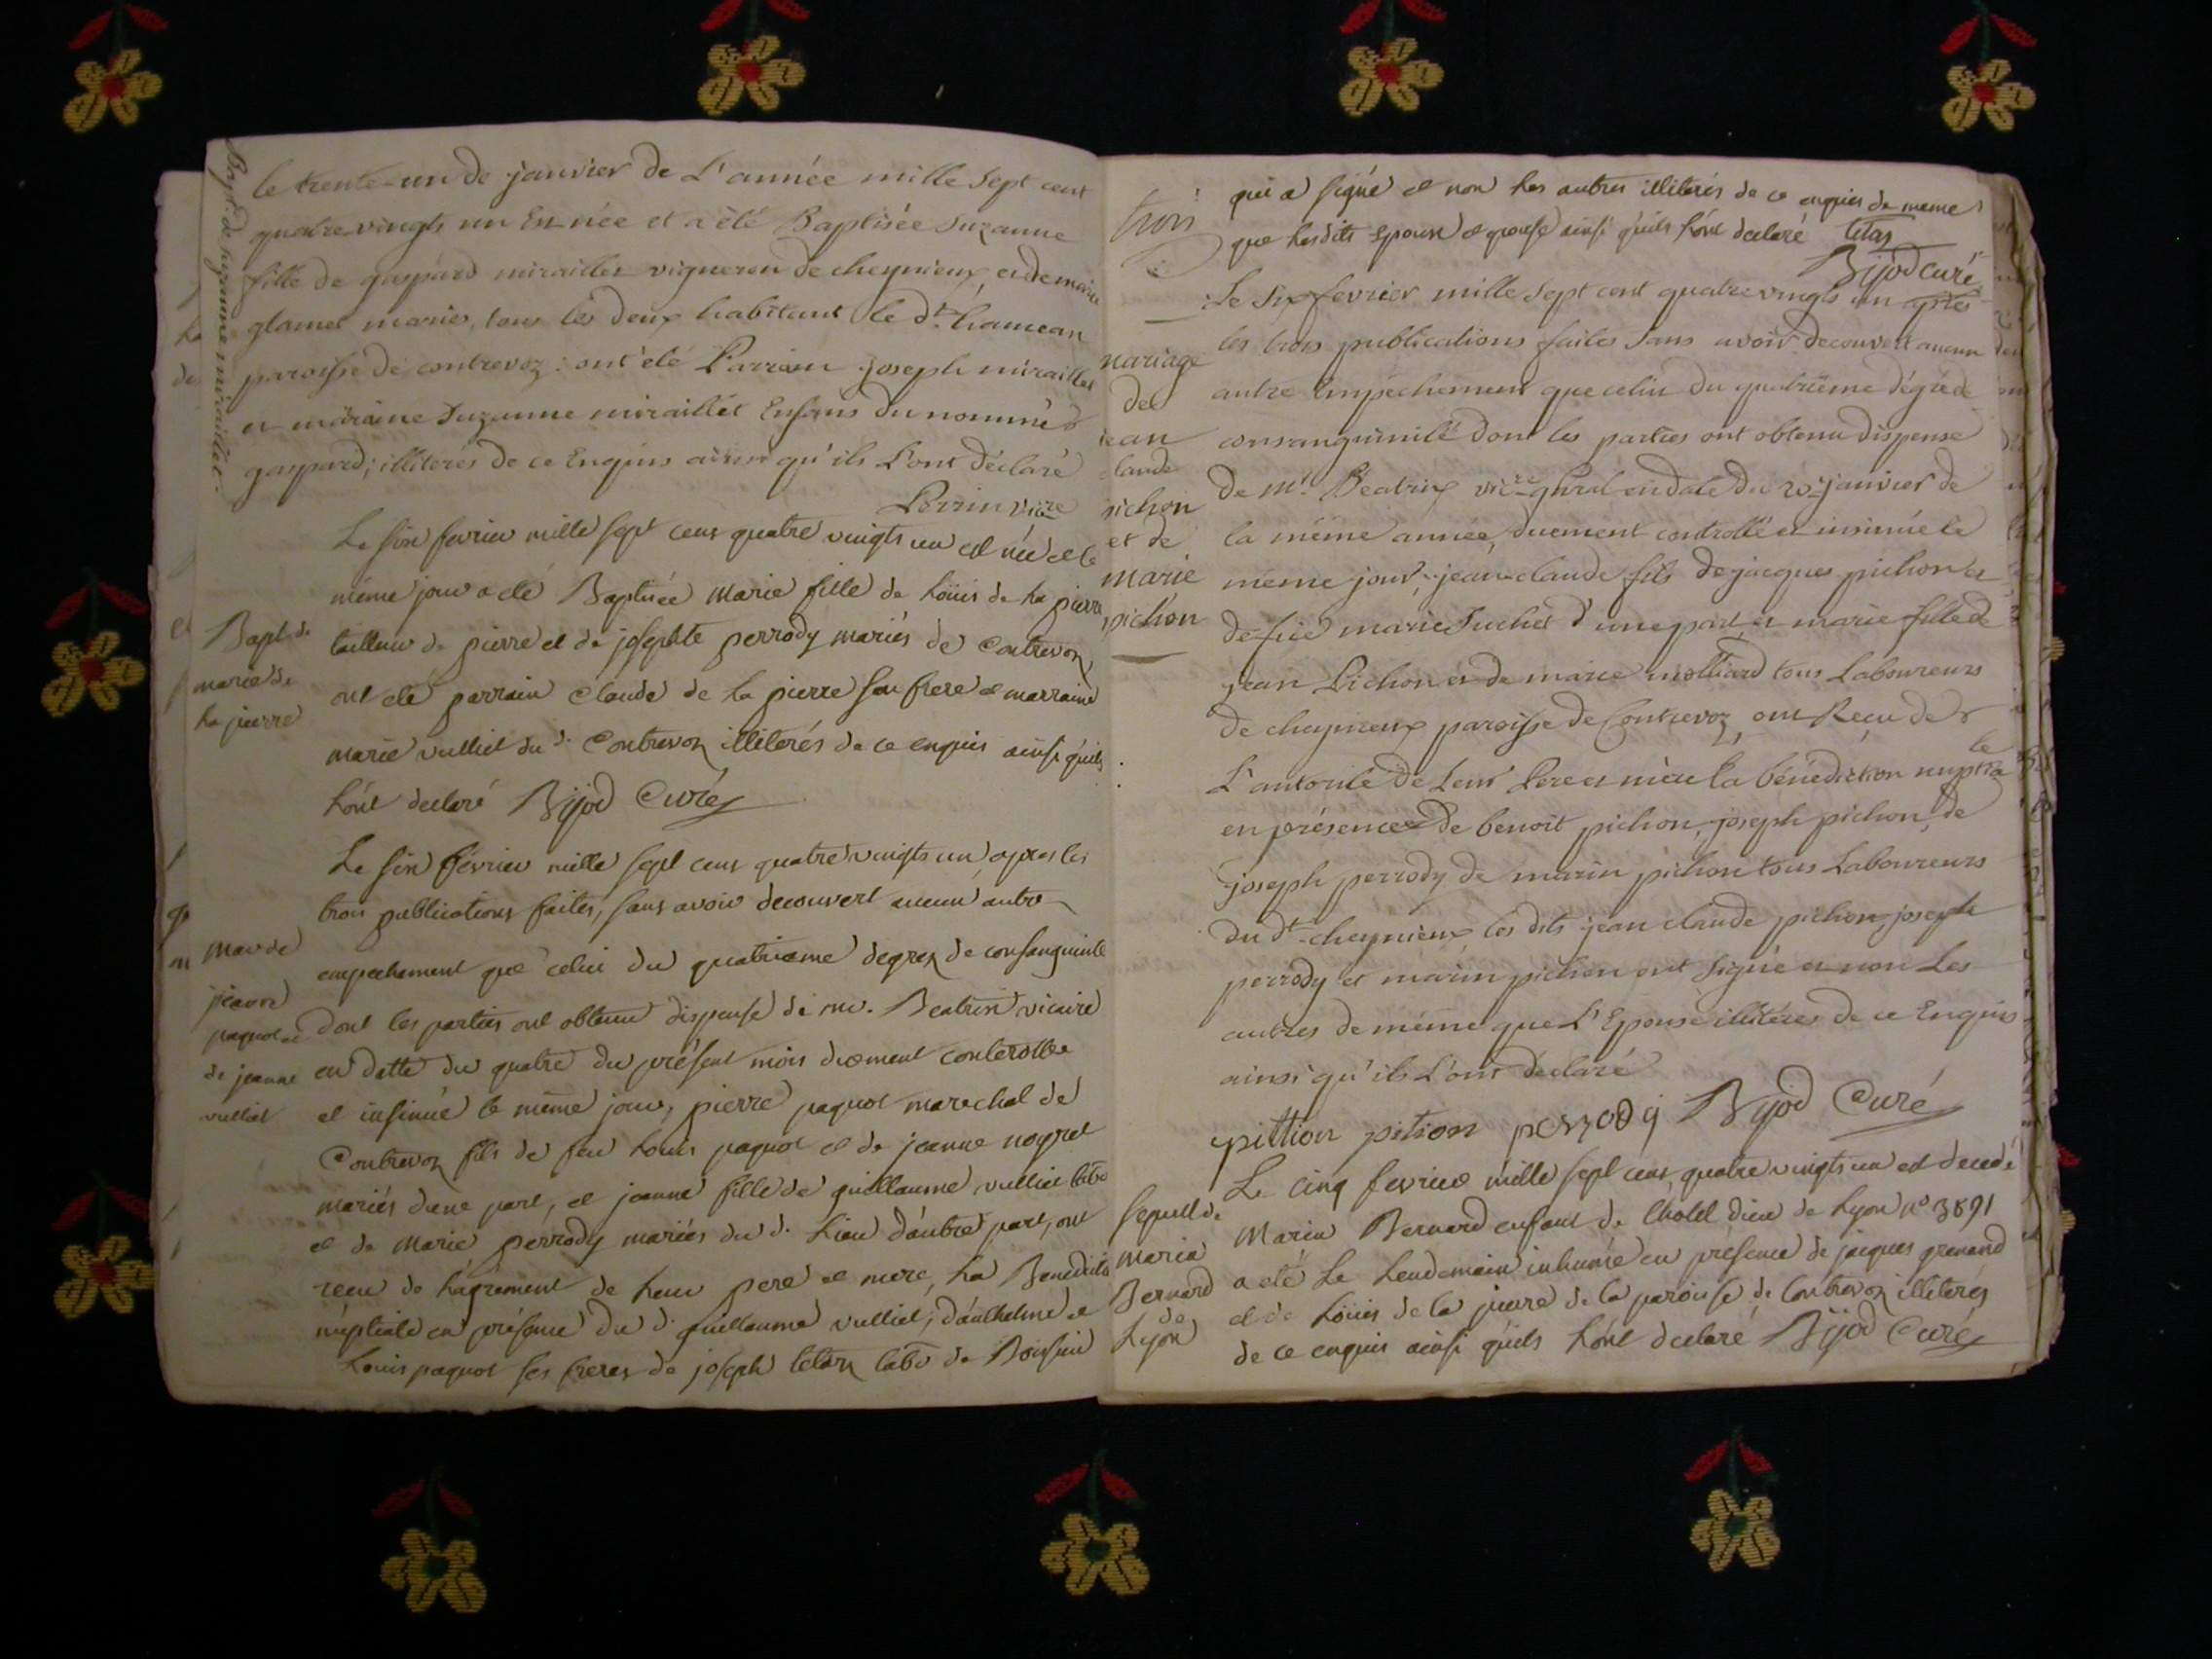 Bapt. de suzanne miraillet.
le trente-un de janvier de L'année mille Sept cent
quatre-vingts un Est née et a été Baptisée Suzanne
fille de gaspard miraillet vigneron de cheynieux, et de marie
glamet mariés, tous les deux habitant le dt. hameau
paroisse de contrevoz : ont été Parrain joseph miraillet
et maraine Suzanne miraillet Enfans du nommé
gaspard; illiterés de ce Enquis ainsi qu'ils L'ont déclaré
Perrin vicre
Bapt. de
marie de
la pierre
Le six fevrier mille sept cens quatre vingts un est née et le
même jour a eté Baptisée Marie fille de Loüis de la pierre
tailleur de pierre et de josephte perrody mariés de Contrevoz
ont eté parrain Claude de la pierre son frere et marraine
marie vulliet du d. Contrevoz illiterés de ce enquis ainsi qu'ils
l'ont declaré Bijod Curé
Mar de
paquot et
de jeanne
vulliet
Le six février mille sept cens quatre vingts un, apres les
trois publications faites, sans avoir decouvert aucun autre
empechement que celui du quatrieme degrez de consanguinité
dont les parties ont obtenu dispense de mr. Beatrix vicaire
en datte du quatre du présent mois duement conterollée
et insinué le même jour, pierre paquot marechal de
Contrevoz fils de feu Louis paquot et de jeanne noyret
mariés d'une part, et jeanne fille de guillaume vulliet labr
et de Marie perrody mariés du d. Lieu d'autre part, ont
reçu de l'agrement de leur pere et mere, la Benedictio
nuptiale en présence du d. guillaume vulliet, d'anthelme et
Louis paquot ses freres de joseph tetaz labr de Boissieu
trois
qui a signé et non les autres illiterés de ce enquis de meme
que lesdits Epoux et epouse ainsi qu'ils l'ont declaré tetaz
Bijod curé
mariage
de
jean
claude
pichon
et de
marie
pichon
Le Six fevrier mille Sept cent quatre vingts un après
les trois publications faites Sans avoir decouvert aucun
autre Empêchement que celui du quatrième dégré de
consanguinité dont les parties ont obtenu dispense
de mr. Béatrix vicre ghral en date du 20 janvier de
la même année, duement controllé et insinuée le
même jour, jean-claude fils de jacques pichon et
de feüe marie Suchet d'une part, et marie fille de
jean Pichon et de marie molliard tous Laboureurs
de cheynieux paroisse de Contrevoz, ont Reçu de
L'autorité de Leur Pere et mère la bénédiction nuptiale
en présence de benoit pichon, joseph pichon, de
joseph perrody de marin pichon tous Laboureurs
du dt. cheynieux les dits jean claude pichon, joseph
perrody et marin pichon ont Signé et non Les
autres de même que L'Epouse illitérés de ce Enquis
ainsi qu'ils L'ont declaré
pittion pition perrody Bijod Curé
Sepult de
Marin
Bernard
de
Lyon
Le cinq fevrier mille sept cens quatre vingts un est decedé
Marin Bernard enfant de l'hotel dieu de Lyon n° 3891
a eté Le Lendemain inhumé en présence de jacques grenand
et de Loüis de la pierre de la paroisse de Contrevoz illiterés
de ce enquis ainsi qu'ils l'ont declaré Bijod Curé